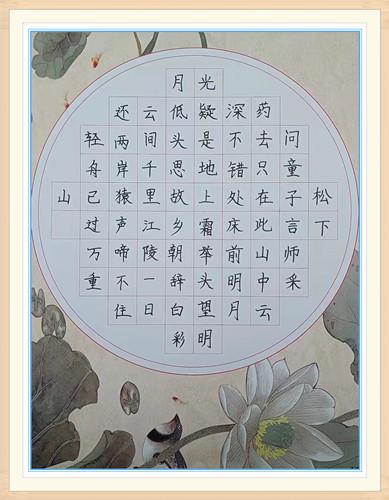 松下
问童子言师采
药去只在此山中云
深不错处床前明月
光疑是地上霜举头望明
月低头思故乡朝辞白彩
云间千里江陵一日
还两岸猿声啼不住
轻舟已过万重
山